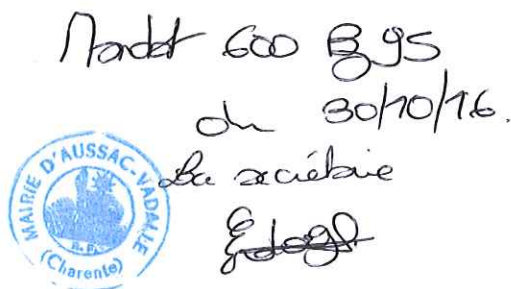 Mandat 600 B 95
du 30/10/16.
La secrétaire
MAIRIE D'AUSSAC-VADALLE
R.F.
(Charente)